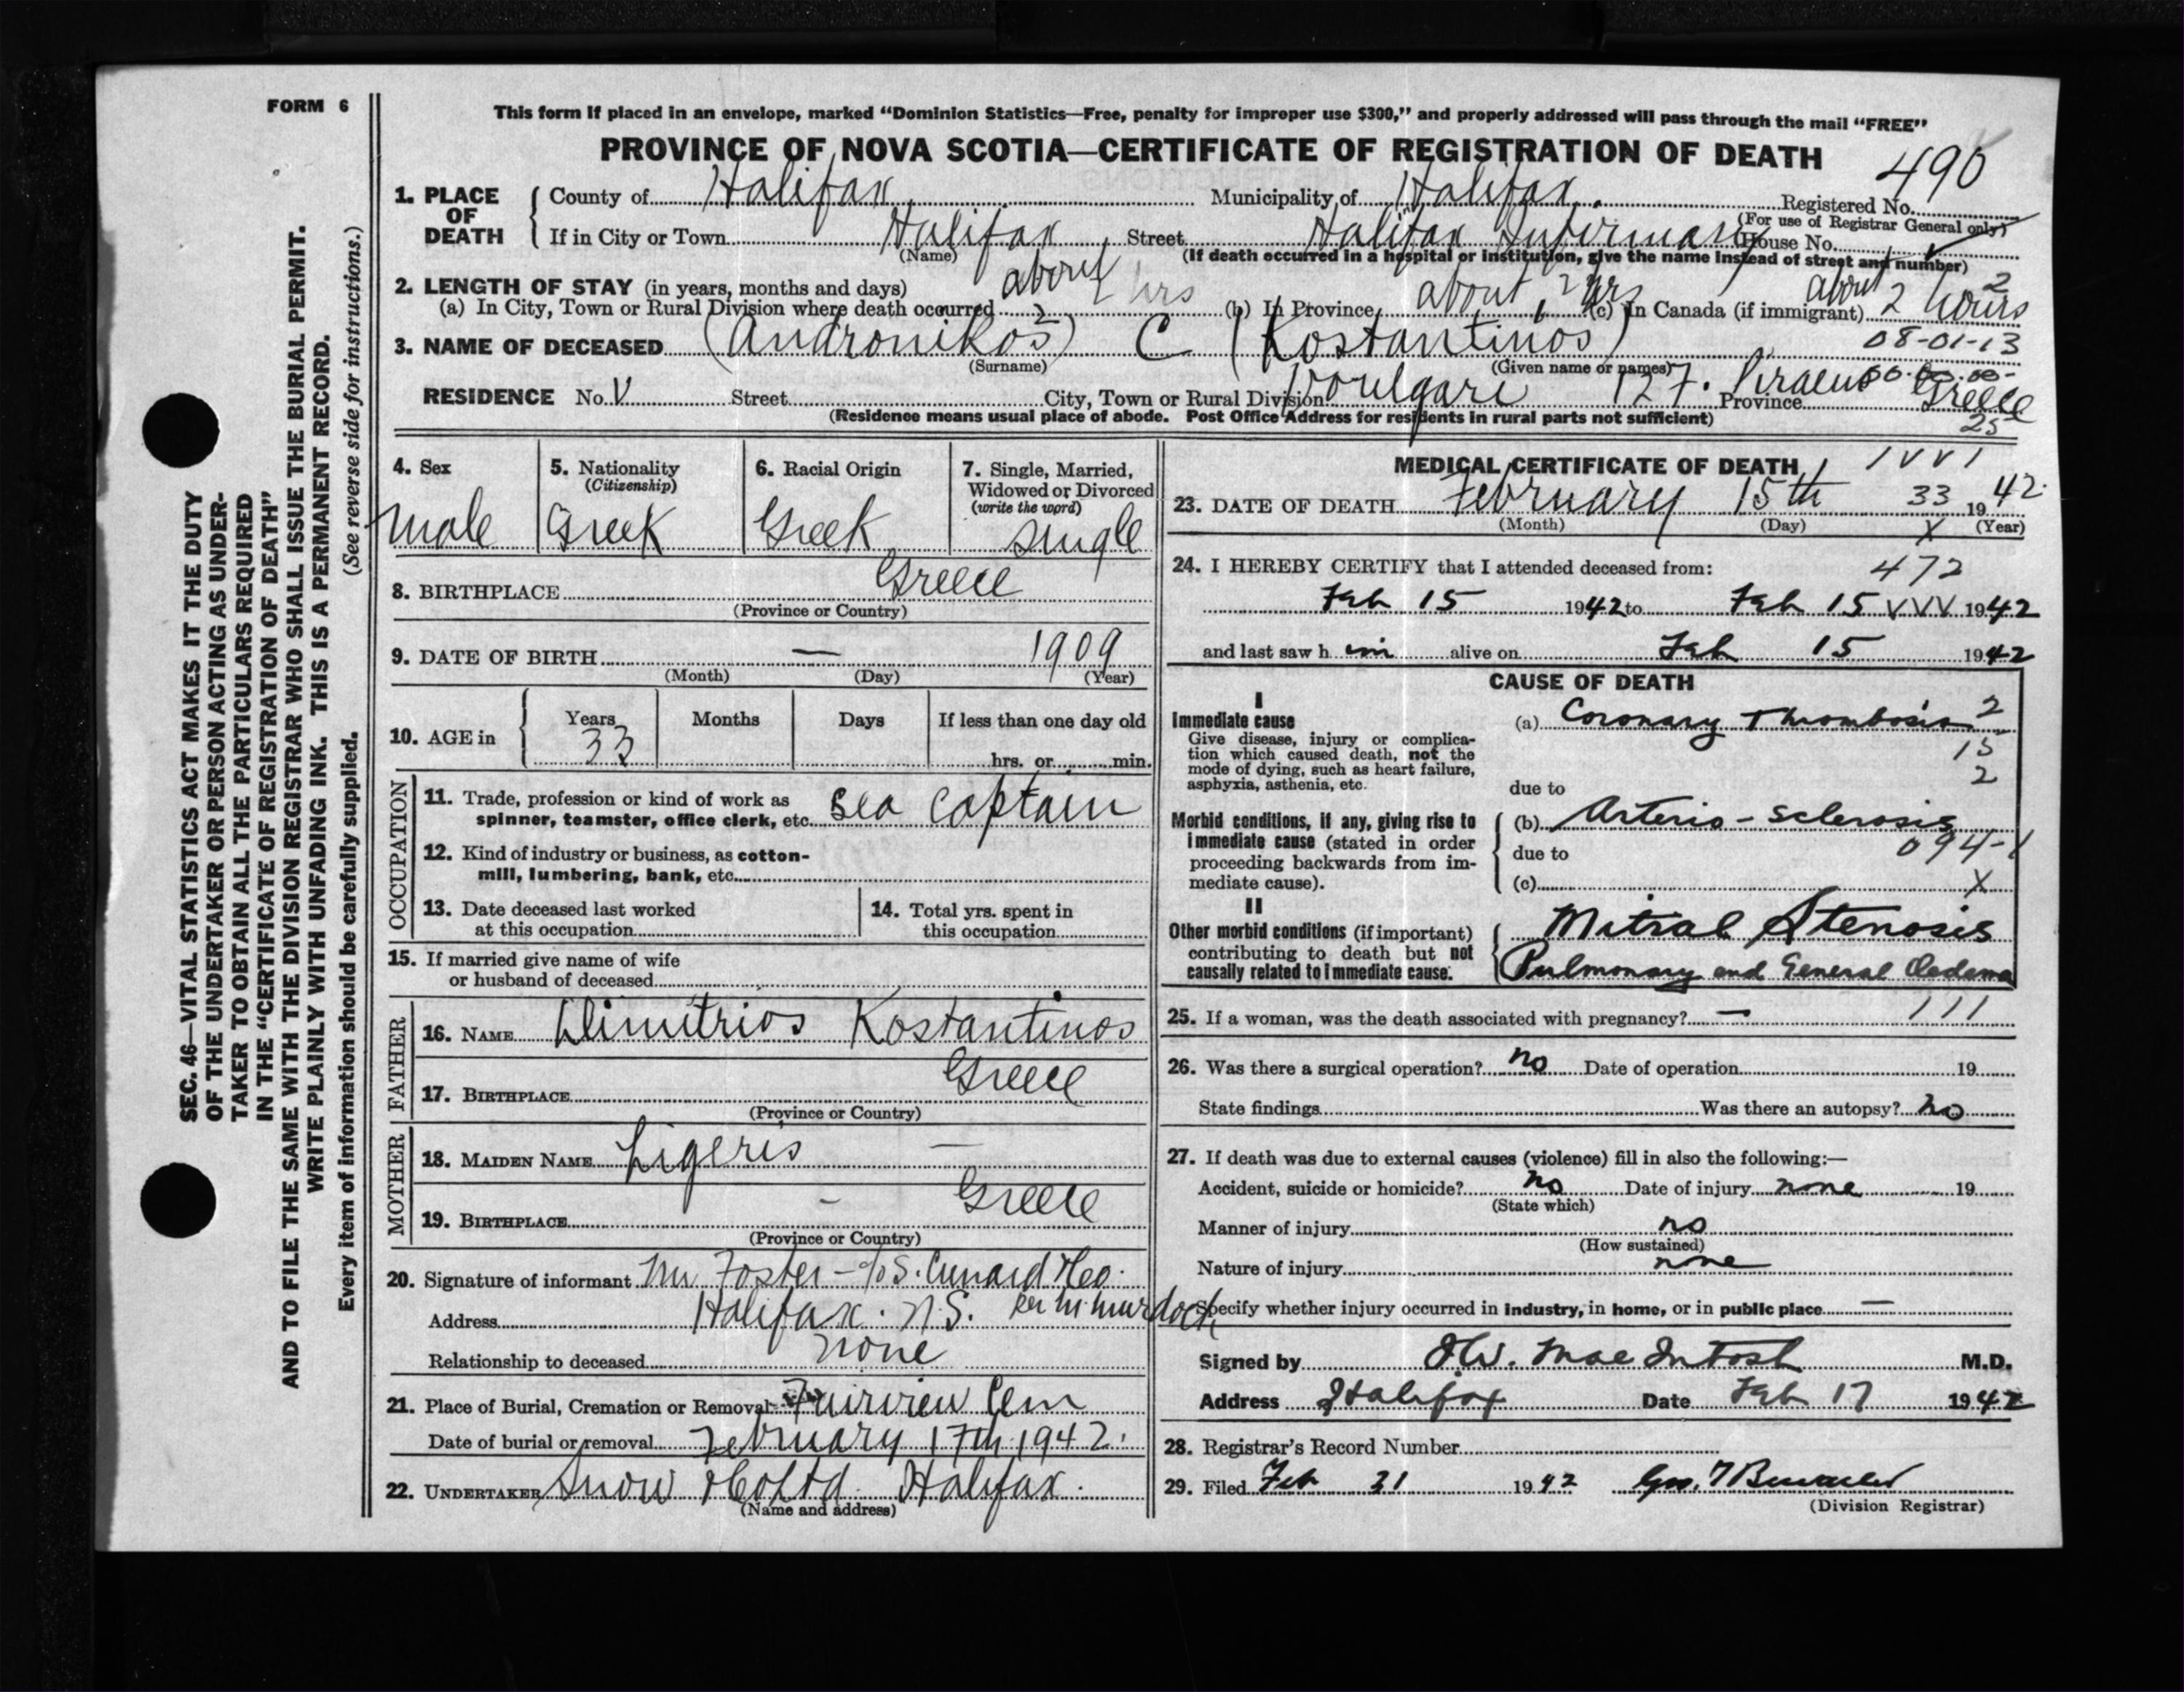 FORM 6
This form if placed in an envelope, marked “Dominion Statistics—Free, penalty for improper use $300,” and properly addressed will pass through the mail “FREE”
PROVINCE OF NOVA SCOTIA—CERTIFICATE OF REGISTRATION OF DEATH
490
1. PLACE OF DEATH
County of Halifax Municipality of Halifax. Registered No.
(For use of Registrar General only)
If in City or Town Halifax Street Halifax Infirmary House No.
(Name) (If death occurred in a hospital or institution, give the name instead of street and number)
2. LENGTH OF STAY (in years, months and days)
(a) In City, Town or Rural Division where death occurred about 2 hrs (b) In Province about 2 hrs (c) In Canada (if immigrant) about 2 hours
2
3. NAME OF DECEASED (Andronikos) C (Kostantinos)
08-01-13
(Surname) (Given name or names)
RESIDENCE No. V Street City, Town or Rural Division Voulgari 127. Piraeus Province Greece
(Residence means usual place of abode. Post Office Address for residents in rural parts not sufficient)
25
4. Sex male
5. Nationality (Citizenship) Greek
6. Racial Origin Greek
7. Single, Married, Widowed or Divorced (write the word) single
8. BIRTHPLACE Greece
(Province or Country)
9. DATE OF BIRTH — 1909
(Month) (Day) (Year)
10. AGE in Years 33 Months Days If less than one day old
hrs. or min.
OCCUPATION
11. Trade, profession or kind of work as spinner, teamster, office clerk, etc. Sea Captain
12. Kind of industry or business, as cotton-mill, lumbering, bank, etc.
13. Date deceased last worked at this occupation
14. Total yrs. spent in this occupation
15. If married give name of wife or husband of deceased
FATHER
16. NAME Dimitrios Kostantinos
17. BIRTHPLACE Greece
(Province or Country)
MOTHER
18. MAIDEN NAME Ligeris —
19. BIRTHPLACE - Greece
(Province or Country)
20. Signature of informant Mr Foster - c/o S. Cunard & Co.
Address Halifax. N.S. per M. Murdoch
Relationship to deceased none
21. Place of Burial, Cremation or Removal Fairview Cem
Date of burial or removal February 17th 1942.
22. UNDERTAKER Snow & Co Ltd. Halifax.
(Name and address)
MEDICAL CERTIFICATE OF DEATH
23. DATE OF DEATH February 15th 33 1942.
(Month) (Day) (Year)
X
24. I HEREBY CERTIFY that I attended deceased from:
472
Feb 15 1942 to Feb 15 VVV 1942
and last saw h im alive on Feb 15 1942
CAUSE OF DEATH
I
Immediate cause
Give disease, injury or complication which caused death, not the mode of dying, such as heart failure, asphyxia, asthenia, etc.
(a) Coronary Thrombosis 2
15
2
due to
Morbid conditions, if any, giving rise to immediate cause (stated in order proceeding backwards from immediate cause).
(b) Arterio-sclerosis
due to 094-1
(c) X
II
Other morbid conditions (if important) contributing to death but not causally related to immediate cause.
Mitral Stenosis
Pulmonary and General Oedema
25. If a woman, was the death associated with pregnancy? — 111
26. Was there a surgical operation? no Date of operation 19
State findings Was there an autopsy? no
27. If death was due to external causes (violence) fill in also the following:—
Accident, suicide or homicide? no Date of injury none 19
(State which)
Manner of injury no
(How sustained)
Nature of injury none
Specify whether injury occurred in industry, in home, or in public place —
Signed by MacIntosh M.D.
Address Halifax Date Feb 17 1942
28. Registrar's Record Number
29. Filed Feb 21 1942
(Division Registrar)
SEC. 46—VITAL STATISTICS ACT MAKES IT THE DUTY
OF THE UNDERTAKER OR PERSON ACTING AS UNDER-
TAKER TO OBTAIN ALL THE PARTICULARS REQUIRED
IN THE “CERTIFICATE OF REGISTRATION OF DEATH”
AND TO FILE THE SAME WITH THE DIVISION REGISTRAR WHO SHALL ISSUE THE BURIAL PERMIT.
WRITE PLAINLY WITH UNFADING INK. THIS IS A PERMANENT RECORD.
Every item of information should be carefully supplied. (See reverse side for instructions.)